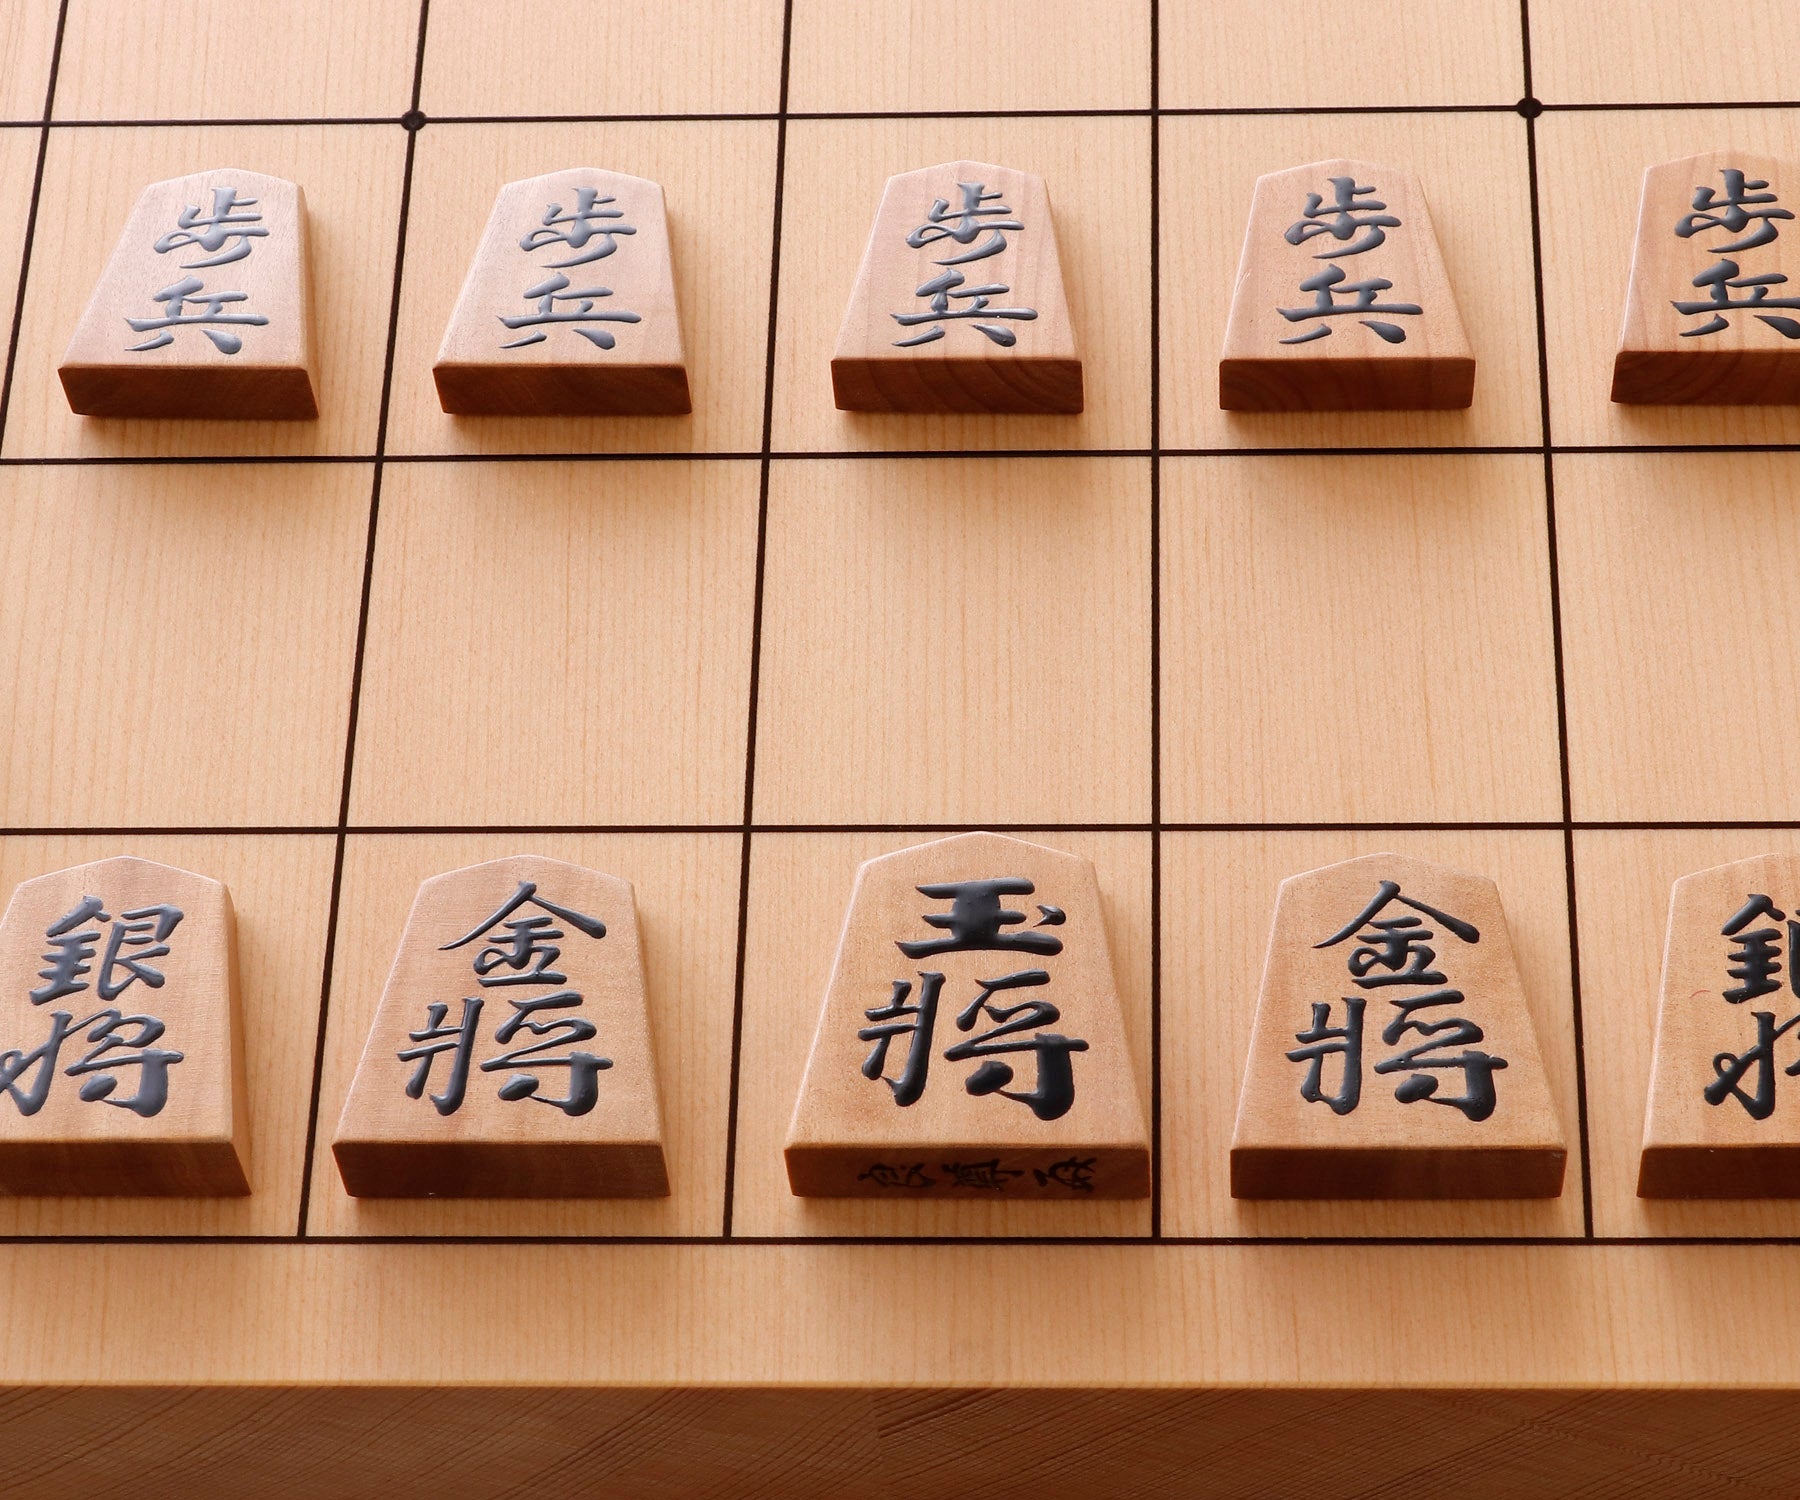 歩兵
歩兵
歩兵
歩兵
歩兵
銀将
金將
玉將
金將
銀将